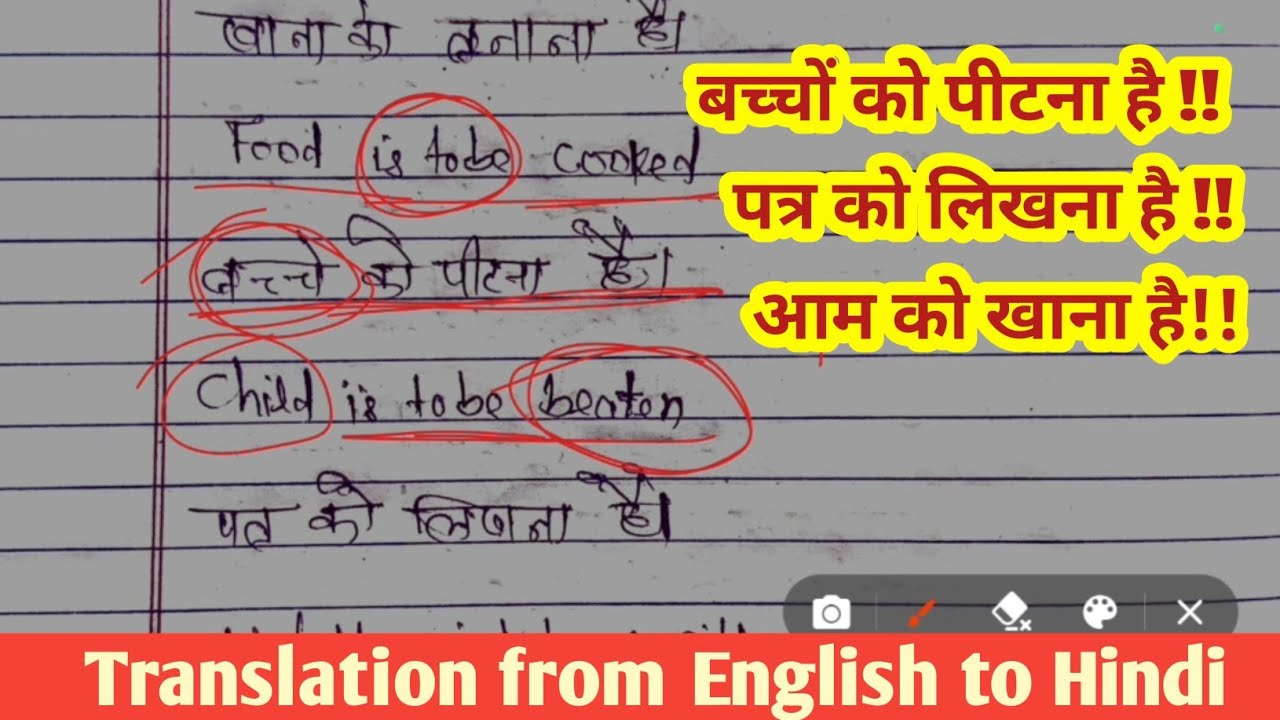 खाना को बनाना है।
बच्चों को पीटना है !!
Food is to be cooked
पत्र को लिखना है !!
बच्चे को पीटना है।
आम को खाना है!!
Child is to be beaten
पत्र को लिखना है।
Translation from English to Hindi